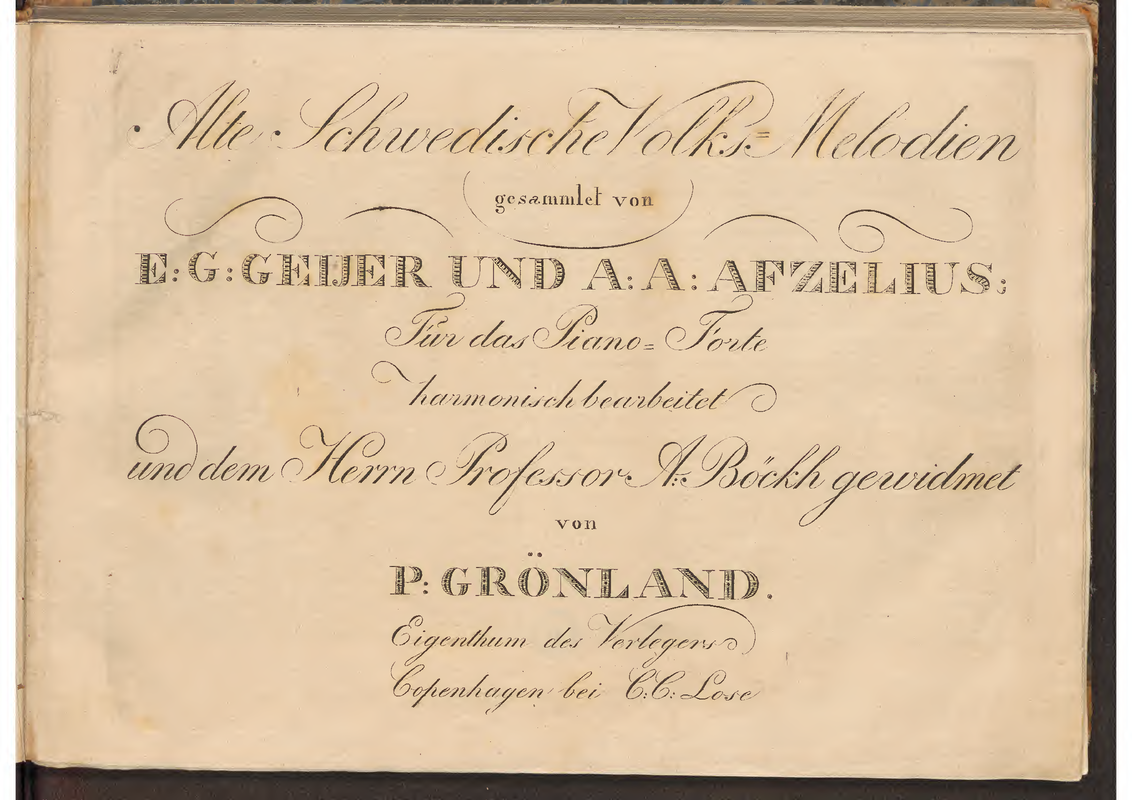 Alte Schwedische Volks=Melodien
gesammlet von
E: G: GEIJER UND A: A: AFZELIUS;
Für das Piano=Forte
harmonisch bearbeitet
und dem Herrn Professor A: Böckh gewidmet
von
P: GRÖNLAND.
Eigenthum des Verlegers
Copenhagen bei C: C: Lose